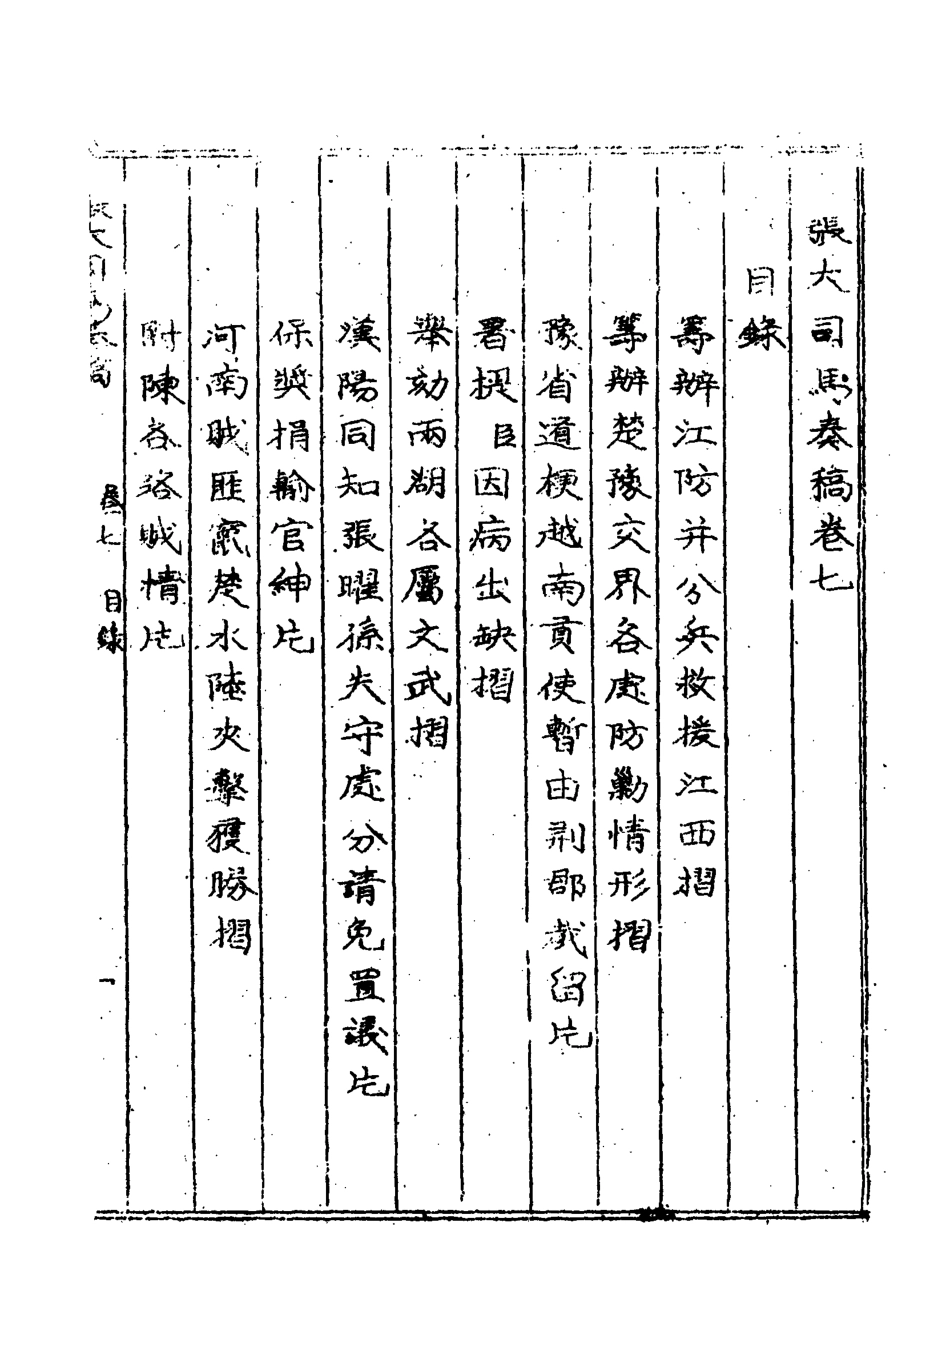 張大司馬奏稿卷七
目錄
籌辦江防并分兵救援江西摺
籌辦楚豫交界各處防勦情形摺
豫省道梗越南貢使暫由荆郡截留片
署提臣因病出缺摺
舉劾兩湖各屬文武摺
漢陽同知張曜孫失守處分請免置議片
保獎捐輸官紳片
河南賊匪竄楚水陸夾擊獲勝摺
附陳各路賊情片
張大司馬奏稿 卷七 目錄 一